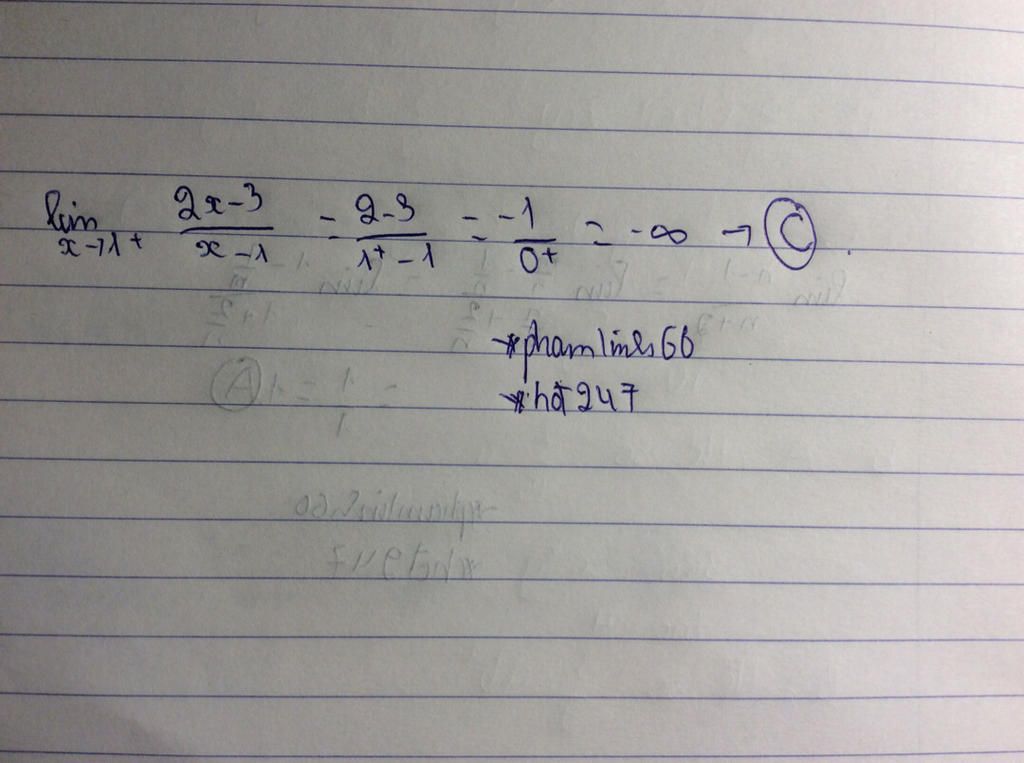 lim x→1+ 2x-3/x-1 = 2-3/1+-1 = -1/0+ = -∞ → C.
*phamlinh66
*hot247